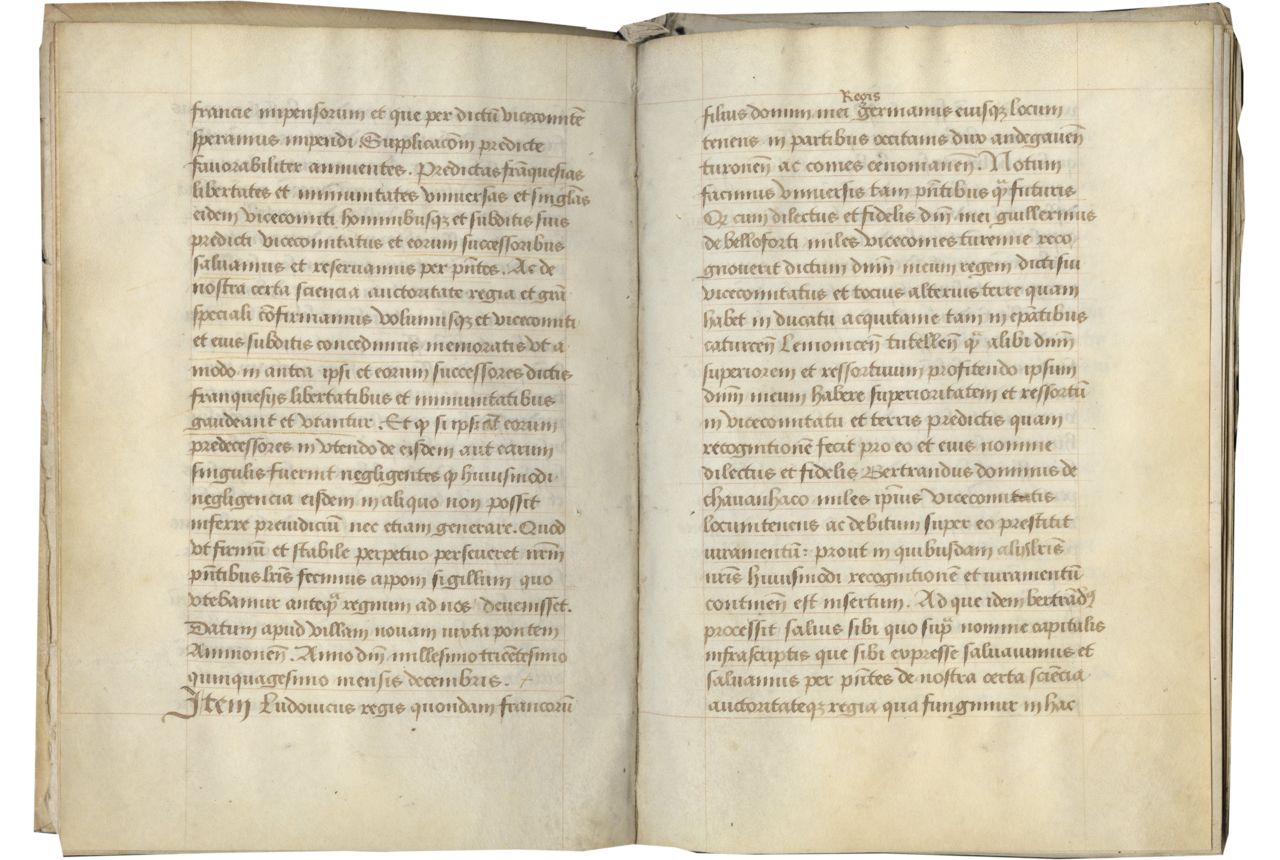 francie impensorum et que per dictũ vicecomitẽ
speramus impendi Supplicacõm predicte
fauorabiliter annuentes. Predictas frãquesias
libertates et immunitates vniuersas et singl̃as
eidem vicecomiti hominibusqz et subditis suis
predicti vicecomitatus et eorum successoribus
saluamus et reseruamus per pñtes. Ac de
nostra certa sciencia auctoritate regia et grã
speciali cõfirmamus volumusqz et vicecomiti
et eius subditis concedimus memoratis vt a
modo in antea ipsi et eorum successores dictis
franquesijs libertatibus et immunitatibus
gaudeant et vtantur. Et ꝙ si ipsi aut eorum
predecessores in vtendo de eisdem aut earum
singulis fuerint negligentes ꝙ huiusmodi
negligencia eisdem in aliquo non possit
inferre preiudiciũ nec etiam generare. Quod
vt firmũ et stabile perpetuo perseueret nr̃m
pñtibus lr̃is fecimus apponi sigillum quo
vtebamur anteq̃ regnum ad nos deuenisset.
Datum apud villam nouam iuxta pontem
Auinionen̄. Anno dñi millesimo tricẽtesimo
quinquagesimo mensis decembris.
Item Ludouicus regis quondam francorũ
Regis
filius domini mei germanus eiusqz locum
tenens in partibus occitanis dux andegaueñ
turoneñ ac comes cenomaneñ. Notum
facimus vniuersis tam pñtibus q̃ futuris
Qz cum dilectus et fidelis dñi mei guillermus
de belloforti miles vicecomes turenne reco
gnouerit dictum dñm meum regem dicti sui
vicecomitatus et tocius alterius terre quam
habet in ducatu acquitanie tam in ep̃atibus
caturceñ Lemouiceñ tutelleñ q̃ alibi dñm
superiorem et ressortiuum profitendo ipsum
dñm meum habere superioritatem et ressortũ
in vicecomitatu et terris predictis quam
recognitionẽ fecit pro eo et eius nomine
dilectus et fidelis Bertrandus dominus de
chauanhaco miles ip̃ius vicecomitatis
locumtenens ac debitum super eo prestitit
iuramentũ: prout in quibusdam alijs lr̃is
nr̃is huiusmodi recognitionẽ et iuramentũ
continẽn est insertum. Ad que idem bertrãdꝰ
processit saluis sibi quo sup̃ nomine capitulis
infrascriptis que sibi expresse saluauimus et
saluamus per pñtes de nostra certa sciẽcia
auctoritateqz regia qua fungimur in hac